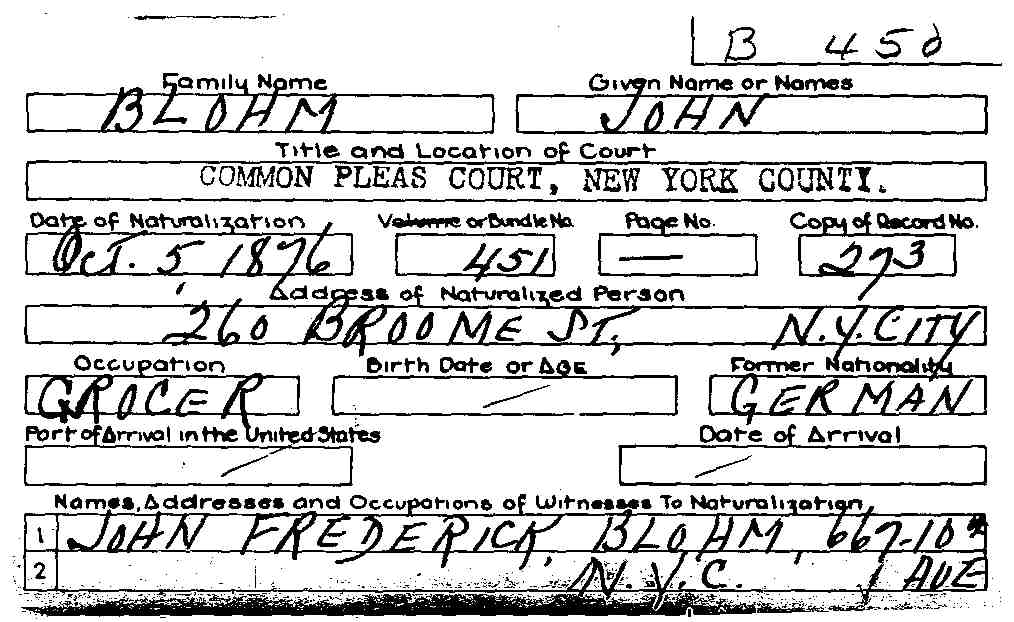 B 450
Family Name Given Name or Names
BLOHM JOHN
Title and Location of Court
COMMON PLEAS COURT, NEW YORK COUNTY.
Date of Naturalization Volume or Bundle No. Page No. Copy of Record No.
Oct. 5, 1876 451 — 273
Address of Naturalized Person
260 BROOME ST, N.Y. CITY
Occupation Birth Date or AGE Former Nationality
GROCER / GERMAN
Port of Arrival in the United States Date of Arrival
/ /
Names, Addresses and Occupations of Witnesses To Naturalization
1 JOHN FREDERICK BLOHM, 667-10th
2 N.Y.C. AVE